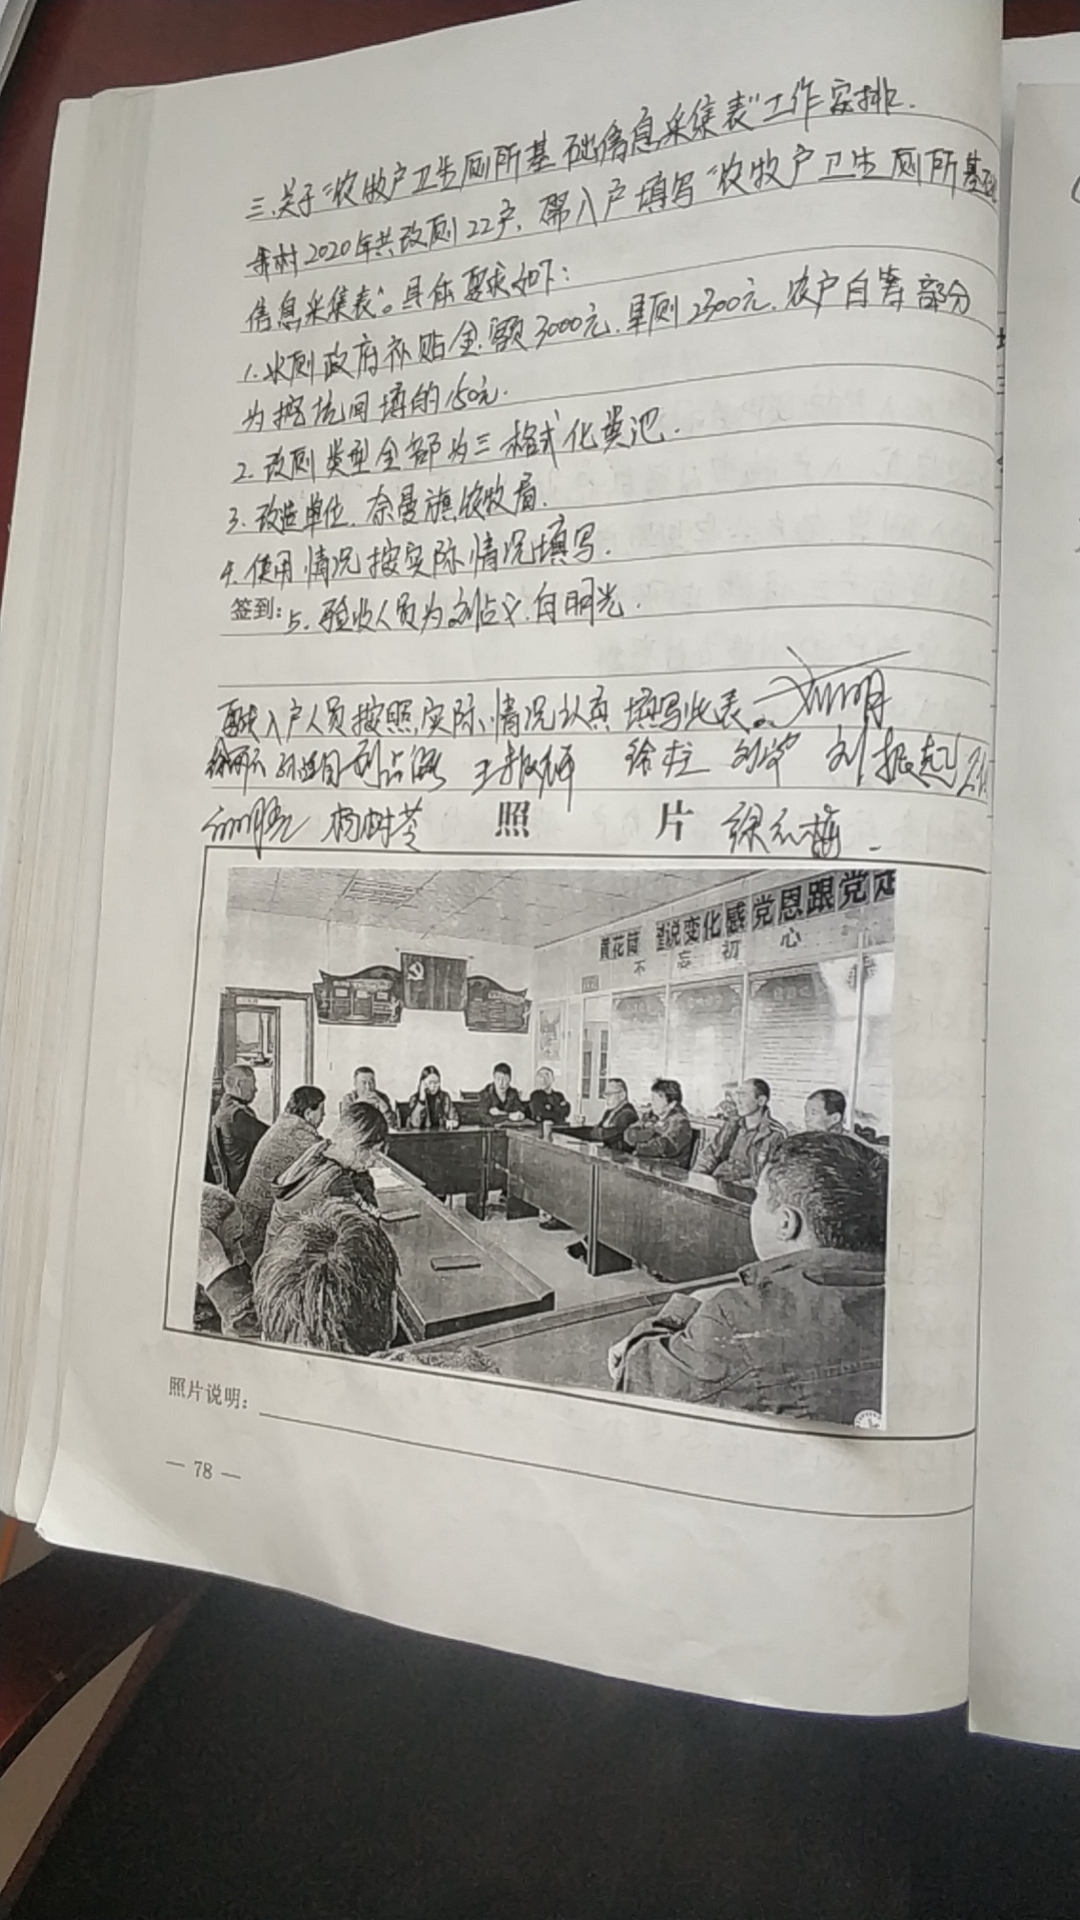 三.关于"农牧户卫生厕所基础信息采集表"工作安排.
我村2020年共改厕22户,需入户填写"农牧户卫生厕所基础
信息采集表"。具体要求如下:
1.水厕政府补贴金额3000元,旱厕2300元.农户自筹部分
为挖坑回填的150元.
2.改厕类型全部为三格式化粪池.
3.改造单位.奈曼旗农牧局.
4.使用情况按实际情况填写.
签到:5.验收人员为刘占义.白明光.
入户人员按照实际情况认真填写此表。
徐柱 刘振起
杨树苓 照片
黄花筒 变化感党恩跟党走
不忘初心
照片说明:
— 78 —